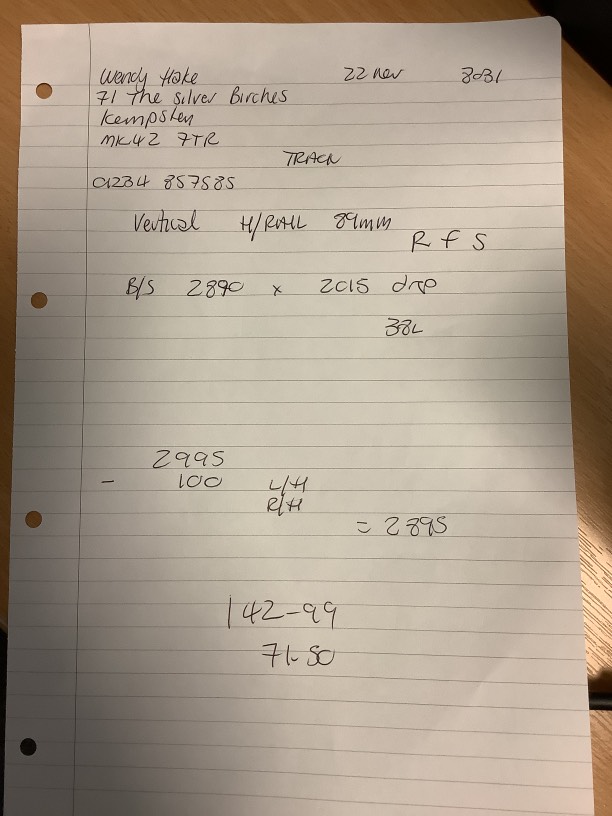 Wendy Hoke 22 nov 8031
71 The Silver Birches
Kempsten
MK42 7TR
TRACK
01234 857585
Vertical H/RAIL 89mm
R f S
B/S 2890 x 2015 drop
38L
2995
- 100 L/H
R/H
= 2895
142-99
71-50